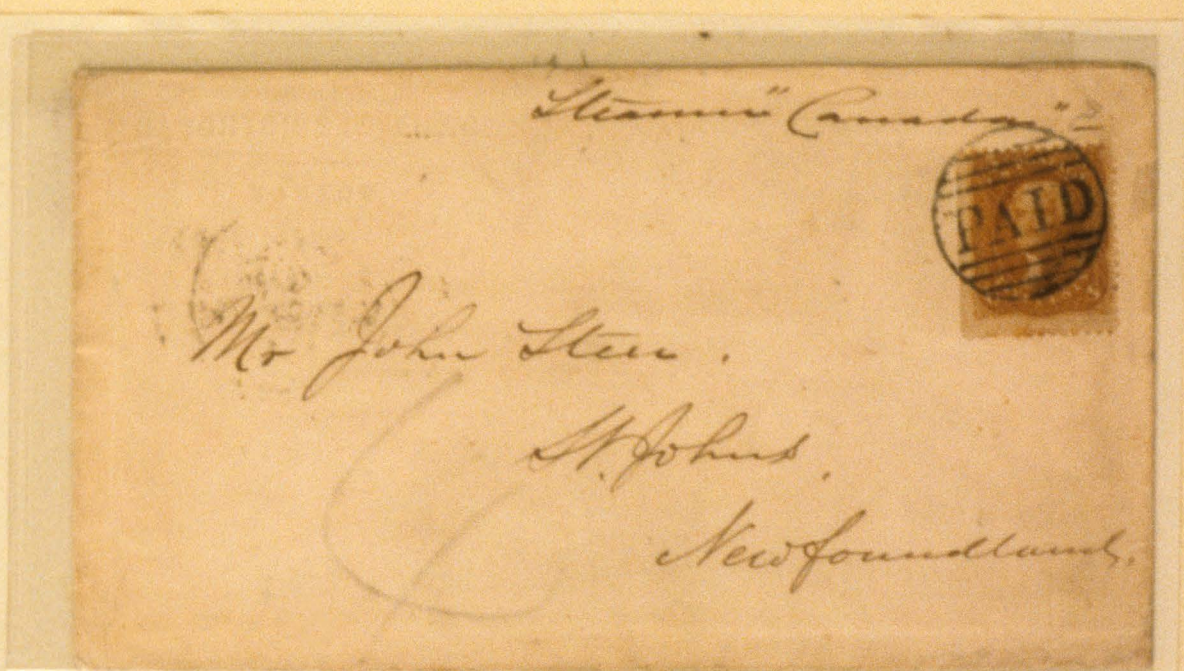 Steamer "Canada"
PAID
Mr John Steer.
St. Johns,
Newfoundland.